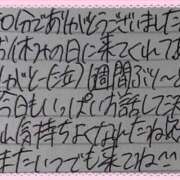 90分でありがとうございました
お休みの日に来てくれてあ
りがとーだ 1週間ぶり〜と
今日もいっぱいお話してス
ん気持ちよくなれたねぇ
またいつでも来てね〜